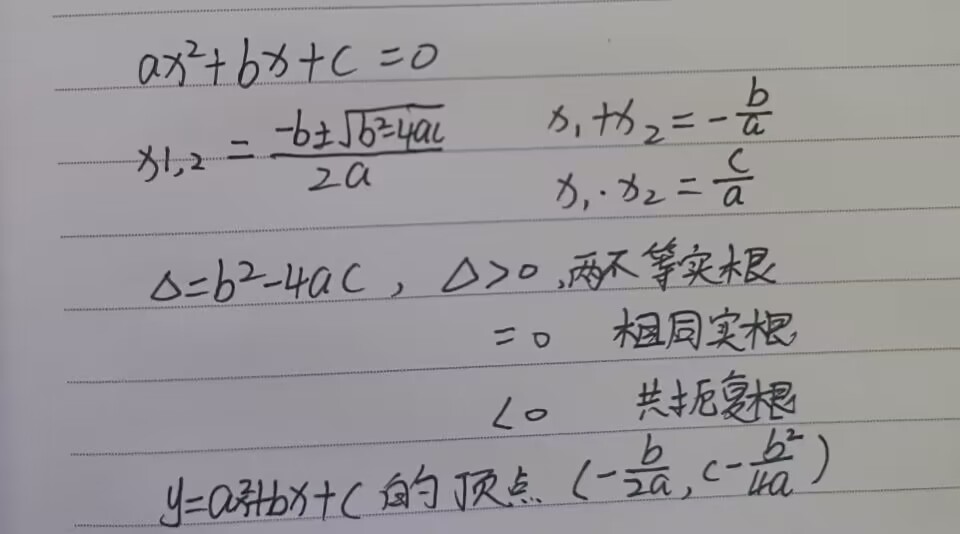 ax²+bx+c=0
x1,2 = (-b±√(b²-4ac))/(2a)
x₁+x₂=-b/a
x₁·x₂=c/a
Δ=b²-4ac, Δ>0,两不等实根
=0 相同实根
<0 共扼复根
y=ax²+bx+c的顶点(-b/2a,c-b²/4a)